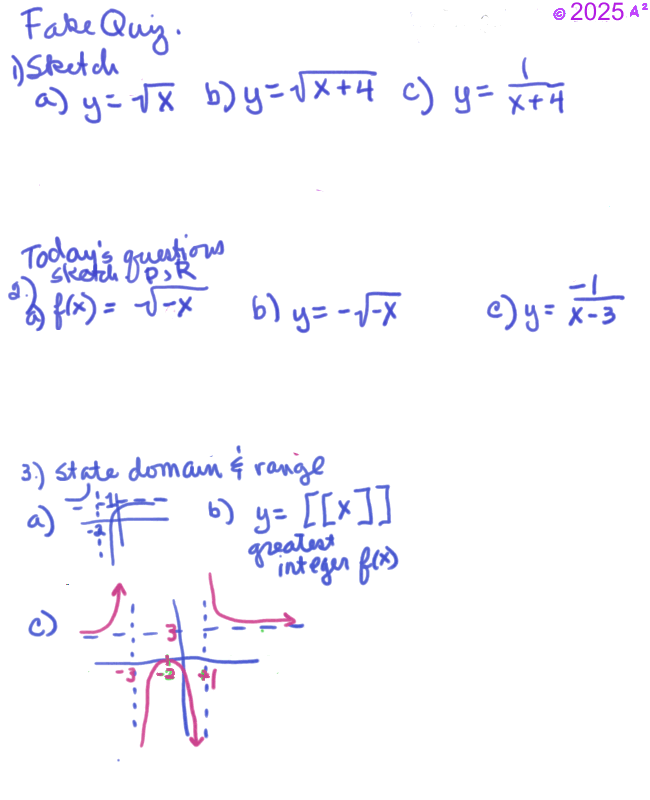 © 2025 A²
Fake Quiz.
1) Sketch
a) y = √x b) y = √x+4 c) y = 1/(x+4)
Today's questions
sketch D, R
2.)
a) f(x) = √-x b) y = -√-x c) y = -1/(x-3)
3.) state domain & range
a) 1 -2 b) y = [[x]]
greatest
integer f(x)
c) 3
-3 -2 +1